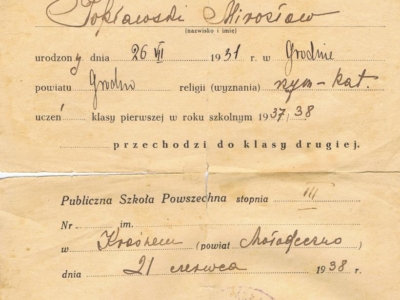 Popławski Mirosław
(nazwisko i imię)
urodzony dnia 26 VI 1931 r. w Grodnie
powiatu Grodno religii (wyznania) rzym-kat.
uczeń klasy pierwszej w roku szkolnym 1937/38
przechodzi do klasy drugiej.
Publiczna Szkoła Powszechna stopnia III
Nr im.
w Kraśnem (powiat Mołodeczno)
dnia 21 czerwca 1938 r.